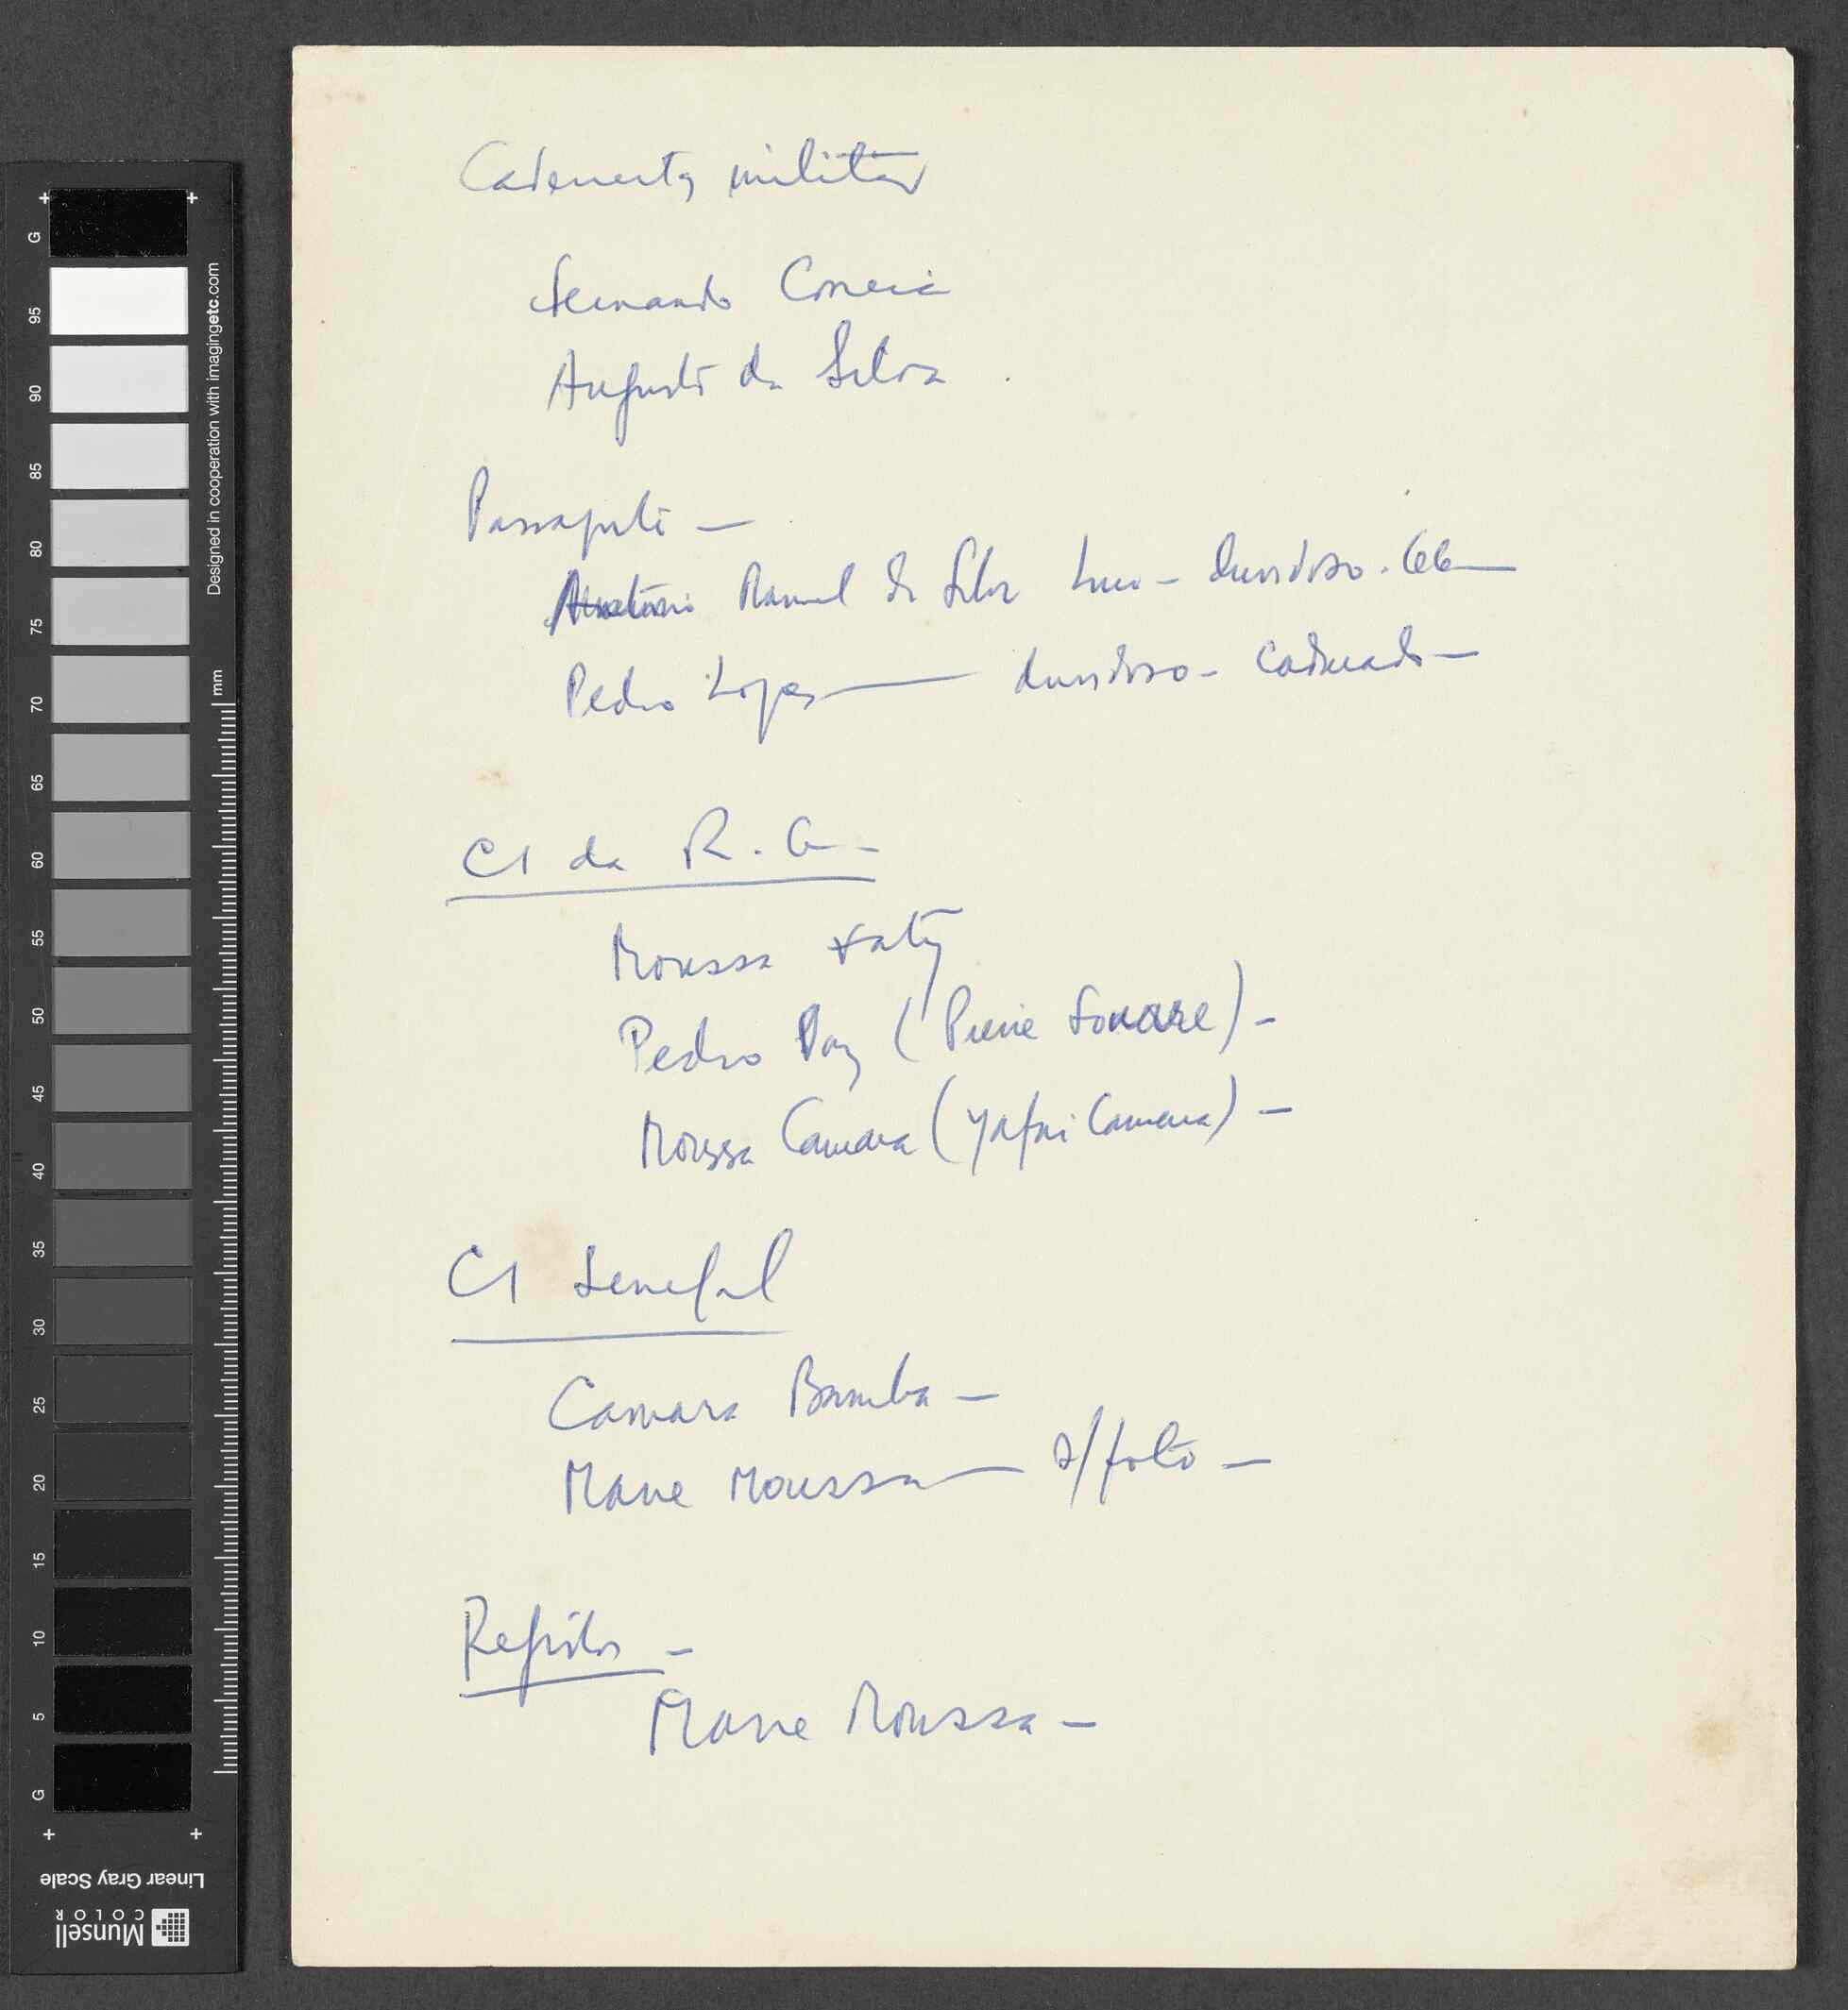 Caderneta militar
Fernando Correia
Augusto da Silva
Passaporte —
Manuel da Silva — duvidoso . 66 —
Pedro Lopes — duvidoso — Caducado —
CI da R. G. -
Moussa Faty
Pedro Vaz (Pierre Souaré) -
Moussa Camara (Yafai Camara) —
CI Senegal
Camara Bamba —
Mane Moussa — s/ foto —
Registos -
Mane Moussa —
G
95
90
85
80
75
70
65
60
55
50
45
40
35
30
25
20
15
10
5
G
Designed in cooperation with imagingetc.com
mm
Linear Gray Scale
Munsell
COLOR